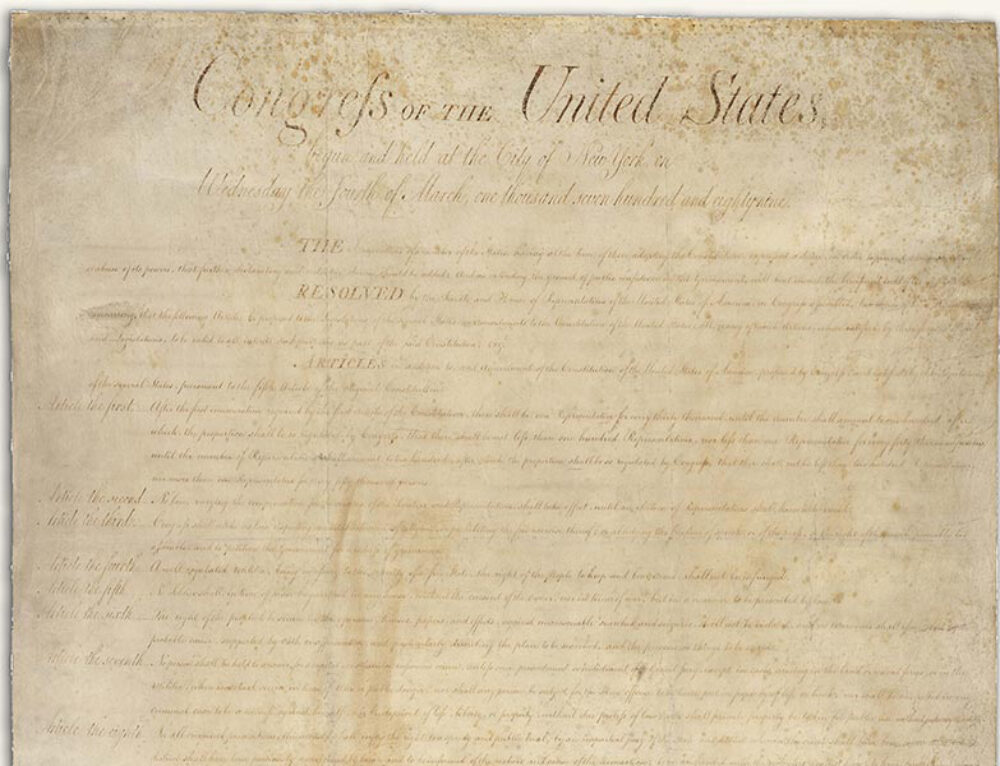 Congress OF THE United States,
begun and held at the City of New York, on
Wednesday the fourth of March, one thousand seven hundred and eighty nine.
THE of the States, having at the time of their adopting the Constitution, expressed a desire, in order to prevent
or abuse of its powers, that further declaratory and restrictive clauses should be added: And as extending the ground of public confidence in the Government, will best
RESOLVED by the Senate and House of Representatives of the United States of America, in Congress assembled, two thirds of
concurring, that the following Articles be proposed to the Legislatures of the several States, as amendments to the Constitution of the United States, all, or any of which Articles, when ratified by three fourths of
said Legislatures, to be valid to all intents and purposes, as part of the said Constitution; viz.
ARTICLES in addition to, and Amendment of the Constitution of the United States of America, proposed by Congress, and ratified by the Legislatures
of the several States, pursuant to the fifth Article of the original Constitution.
Article the first. After the first enumeration required by the first Article of the Constitution, there shall be one Representative for every thirty thousand, until the number shall amount to one hundred, after
which, the proportion shall be so regulated by Congress, that there shall be not less than one hundred Representatives, nor less than one Representative for every forty thousand persons,
until the number of Representatives shall amount to two hundred, after which the proportion shall be so regulated by Congress, that there shall not be less than two hundred
nor more than one Representative for every fifty thousand persons.
Article the second. No law, varying the compensation for the services of the Senators and Representatives, shall take effect, until an election of Representatives shall have intervened.
Article the third. Congress shall make no law respecting an establishment of religion, or prohibiting the free exercise thereof; or abridging the freedom of speech, or of the press; or the right of the people peaceably to
assemble, and to petition the Government for a redress of grievances.
Article the fourth. A well regulated Militia, being necessary to the security of a free State, the right of the people to keep and bear Arms, shall not be infringed.
Article the fifth. No Soldier shall, in time of peace be quartered in any house, without the consent of the owner, nor in time of war, but in a manner to be prescribed by law.
Article the sixth. The right of the people to be secure in their persons, houses, papers, and effects, against unreasonable searches and seizures, shall not be violated, and no warrants shall issue, but upon
probable cause, supported by oath or affirmation, and particularly describing the place to be searched, and the persons or things to be seized.
Article the seventh. No person shall be held to answer for a capital, or otherwise infamous crime, unless on a presentment or indictment of a Grand Jury, except in cases arising in the land or naval forces, or in the
Militia, when in actual service in time of War or public danger; nor shall any person be subject for the same offence to be twice put in jeopardy of life or limb; nor shall be compelled in any
criminal case to be a witness against himself, nor be deprived of life, liberty, or property, without due process of law; nor shall private property be taken for public use without just compensation.
Article the eighth. In all criminal prosecutions, the accused shall enjoy the right to a speedy and public trial, by an impartial jury of the State and district wherein the crime shall have been committed,
district shall have been previously ascertained by law, and to be informed of the nature and cause of the accusation;